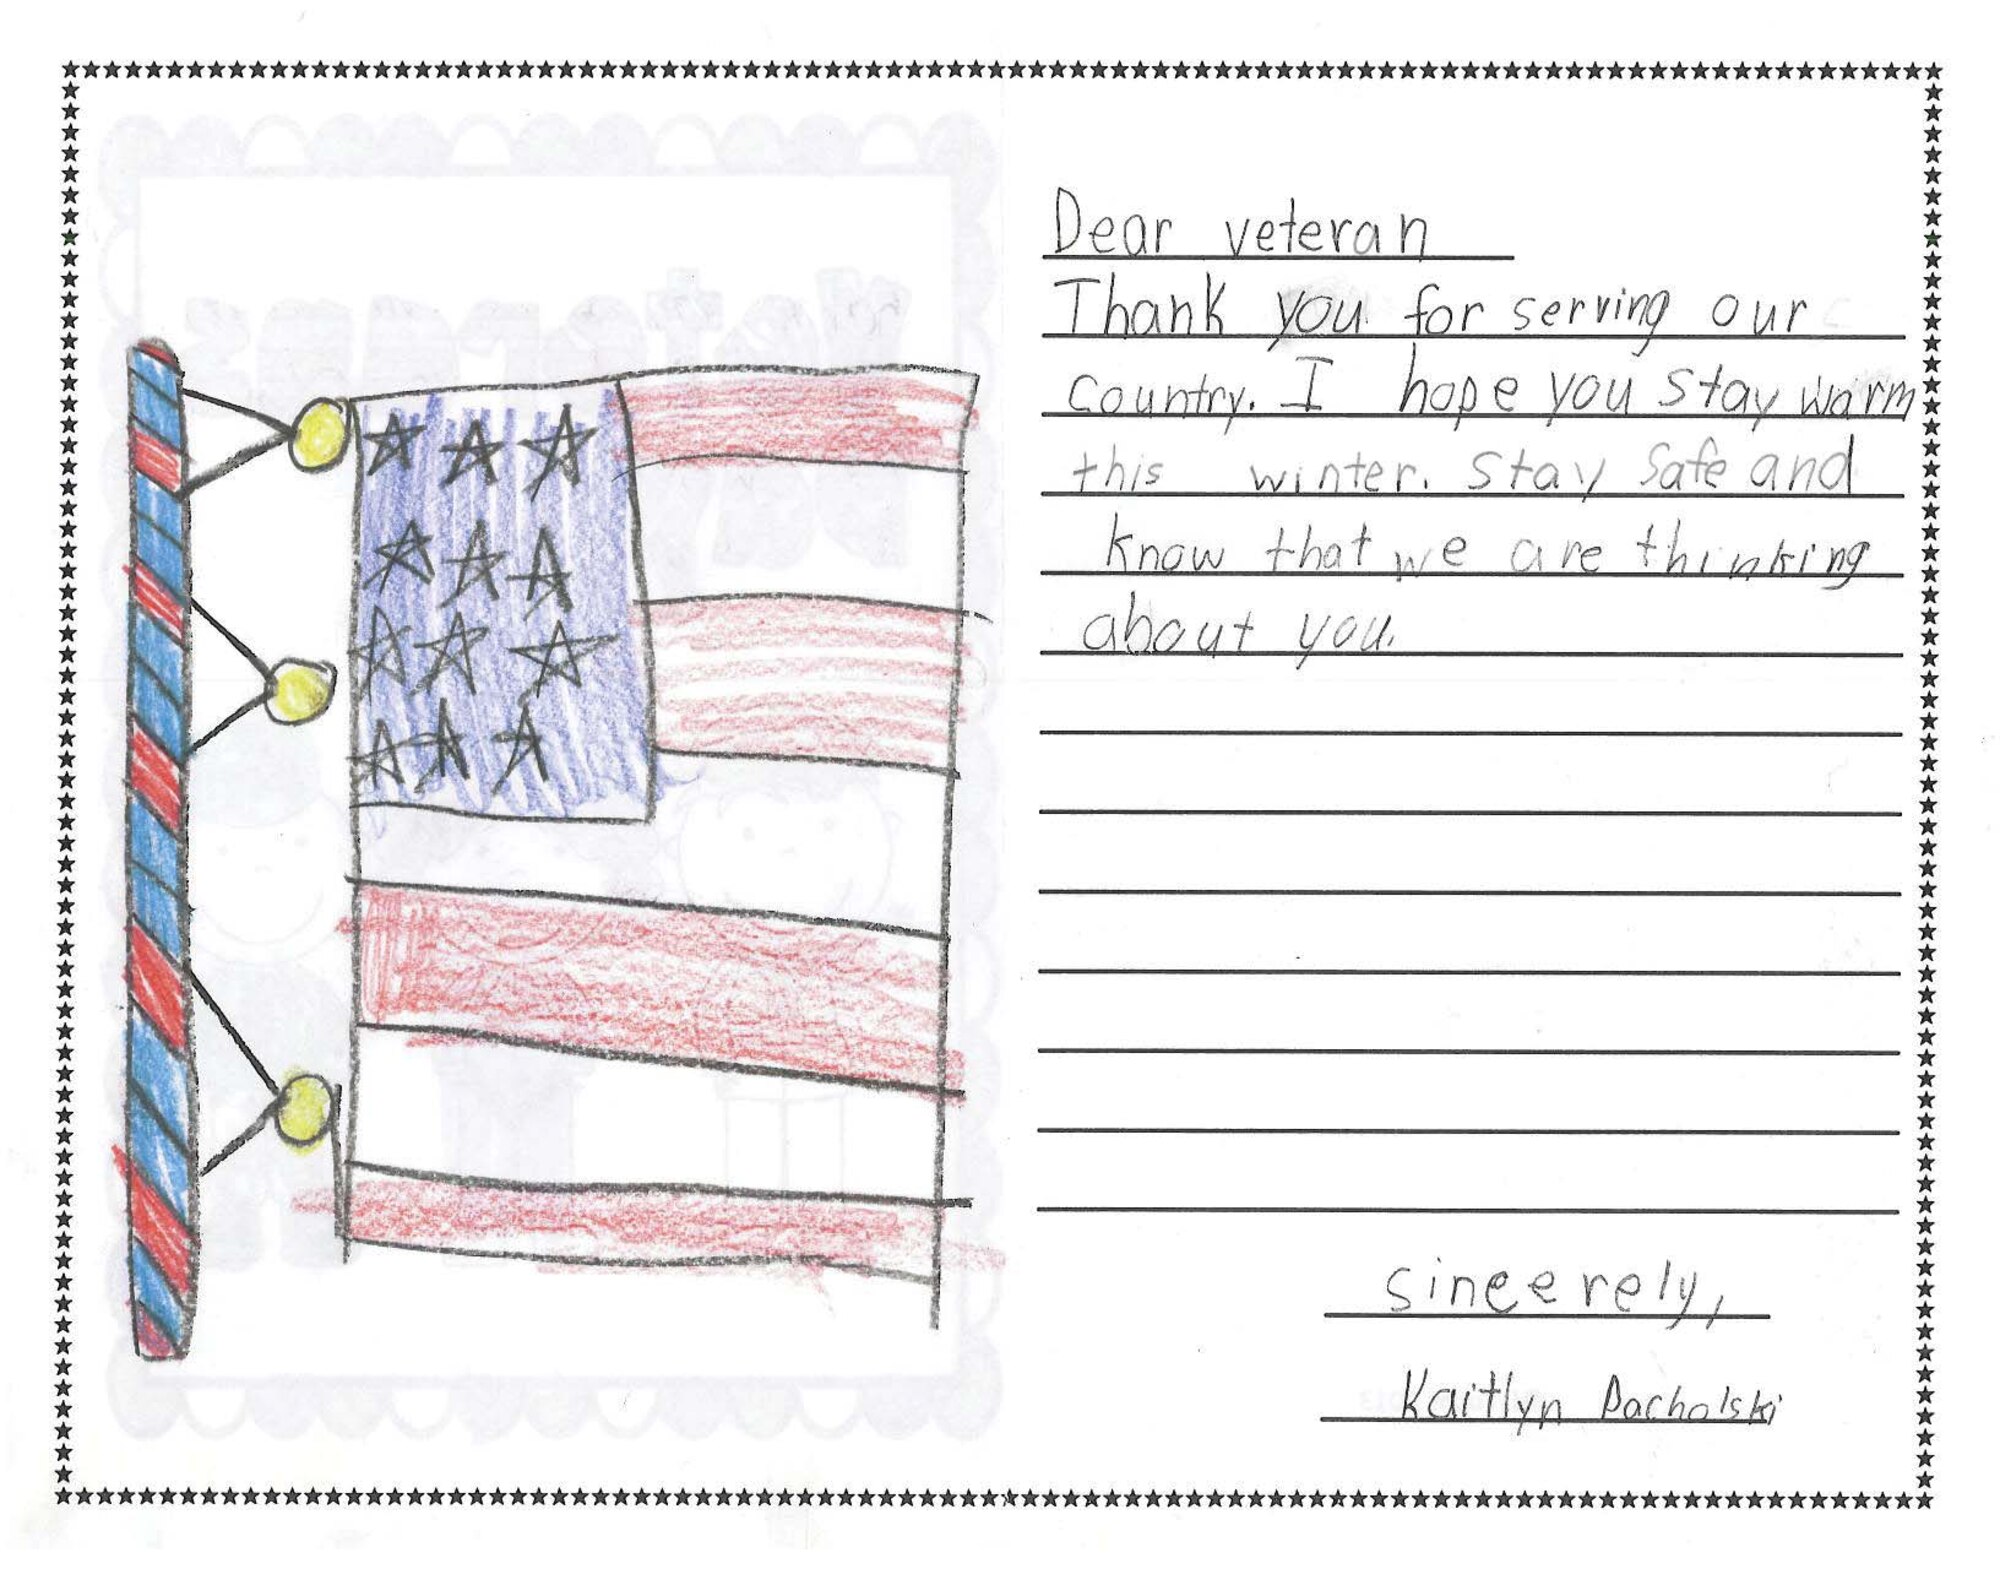 Dear veteran
Thank you for serving our
country. I hope you stay warm
this winter. Stay safe and
know that we are thinking
about you.
sincerely,
Kaitlyn Pacholski